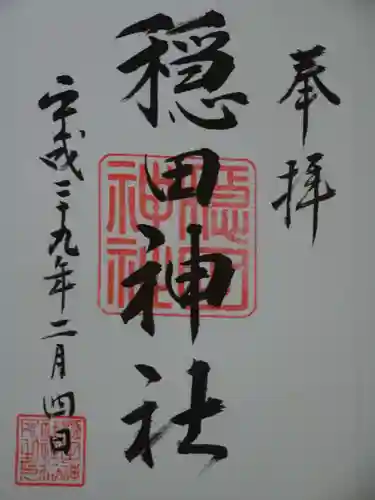 奉拝
穏田神社
平成二十九年二月四日